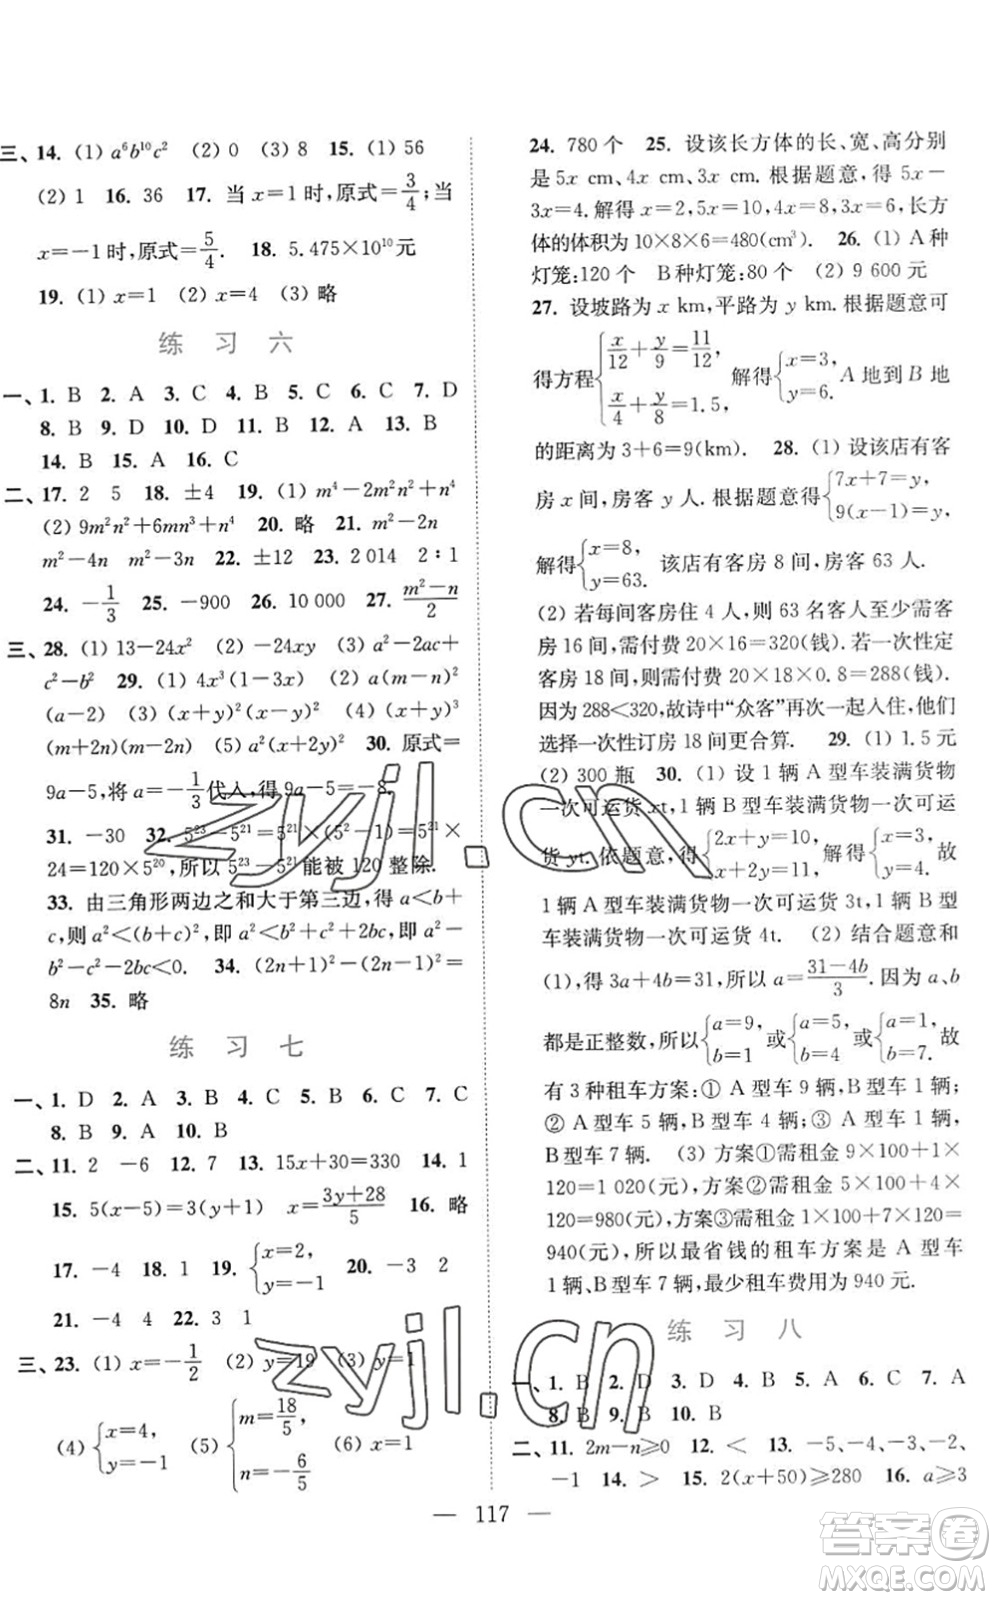 三、14. (1) a⁶b¹⁰c² (2) 0 (3) 8 15. (1) 56
(2) 1 16. 36 17. 当 x=1 时,原式=3/4;当
x=-1 时,原式=5/4. 18. 5.475×10¹⁰元
19. (1) x=1 (2) x=4 (3) 略
练 习 六
一、1. B 2. A 3. C 4. B 5. C 6. C 7. D
8. B 9. D 10. D 11. B 12. A 13. B
14. B 15. A 16. C
二、17. 2 5 18. ±4 19. (1) m⁴-2m²n²+n⁴
(2) 9m²n²+6mn³+n⁴ 20. 略 21. m²-2n
m²-4n m²-3n 22. ±12 23. 2 014 2:1
24. -1/3 25. -900 26. 10 000 27. (m²-n)/2
三、28. (1) 13-24x² (2) -24xy (3) a²-2ac+
c²-b² 29. (1) 4x³(1-3x) (2) a(m-n)
(a-2) (3) (x+y)²(x-y)² (4) (x+y)³
(m+2n)(m-2n) (5) a²(x+2y)² 30. 原式=
9a-5,将 a=-1/3代入,得 9a-5=-8.
31. -30 32. 5²³-5²¹=5²¹×(5²-1)=5²¹×
24=120×5²⁰,所以 5²³-5²¹能被 120 整除.
33. 由三角形两边之和大于第三边,得 a<b+
c,则 a²<(b+c)²,即 a²<b²+c²+2bc,即 a²-
b²-c²-2bc<0. 34. (2n+1)²-(2n-1)²=
8n 35. 略
练 习 七
一、1. D 2. A 3. B 4. C 5. B 6. C 7. C
8. B 9. A 10. B
二、11. 2 -6 12. 7 13. 15x+30=330 14. 1
15. 5(x-5)=3(y+1) x=(3y+28)/5 16. 略
17. -4 18. 1 19. {x=2, y=-1 20. -3 2
21. -4 4 22. 3 1
三、23. (1) x=-1/2 (2) y=19 (3) y=1
(4) {x=4, y=-1 (5) {m=18/5, n=-6/5 (6) x=1
24. 780 个 25. 设该长方体的长、宽、高分别
是 5x cm、4x cm、3x cm. 根据题意,得 5x-
3x=4. 解得 x=2,5x=10,4x=8,3x=6,长方
体的体积为 10×8×6=480(cm³). 26. (1) A 种
灯笼:120 个 B 种灯笼:80 个 (2) 9 600 元
27. 设坡路为 x km,平路为 y km. 根据题意可
得方程{x/12+y/9=11/12, x/4+y/8=1.5, 解得{x=3, y=6. A 地到 B 地
的距离为 3+6=9(km) 28. (1) 设该店有客
房 x 间,房客 y 人. 根据题意得{7x+7=y, 9(x-1)=y,
解得{x=8, y=63. 该店有客房 8 间,房客 63 人.
(2) 若每间客房住 4 人,则 63 名客人至少需客
房 16 间,需付费 20×16=320(钱). 若一次性定
客房 18 间,则需付费 20×18×0.8=288(钱).
因为 288<320,故诗中“众客”再次一起入住,他们
选择一次性订房 18 间更合算. 29. (1) 1.5 元
(2) 300 瓶 30. (1) 设 1 辆 A 型车装满货物
一次可运货 xt,1 辆 B 型车装满货物一次可运
货 yt. 依题意,得{2x+y=10, x+2y=11, 解得{x=3, y=4. 故
1 辆 A 型车装满货物一次可运货 3t,1 辆 B 型
车装满货物一次可运货 4t. (2) 结合题意和
(1),得 3a+4b=31,所以 a=(31-4b)/3.因为 a、b
都是正整数,所以{a=9, b=1 或{a=5, b=4 或{a=1, b=7. 故
有 3 种租车方案:① A 型车 9 辆,B 型车 1 辆;
② A 型车 5 辆,B 型车 4 辆;③ A 型车 1 辆,
B 型车 7 辆. (3) 方案①需租金 9×100+1×
120=1 020(元),方案②需租金 5×100+4×
120=980(元),方案③需租金 1×100+7×120=
940(元),所以最省钱的租车方案是 A 型车
1 辆、B 型车 7 辆,最少租车费用为 940 元.
练 习 八
一、1. B 2. D 3. D 4. B 5. A 6. C 7. A
8. B 9. B 10. B
二、11. 2m-n≥0 12. < 13. -5、-4、-3、-2、
-1 14. > 15. 2(x+50)≥280 16. a≥3
— 117 —
zyjl.cn
zyjl.cn
答案圈
MXQE.COM